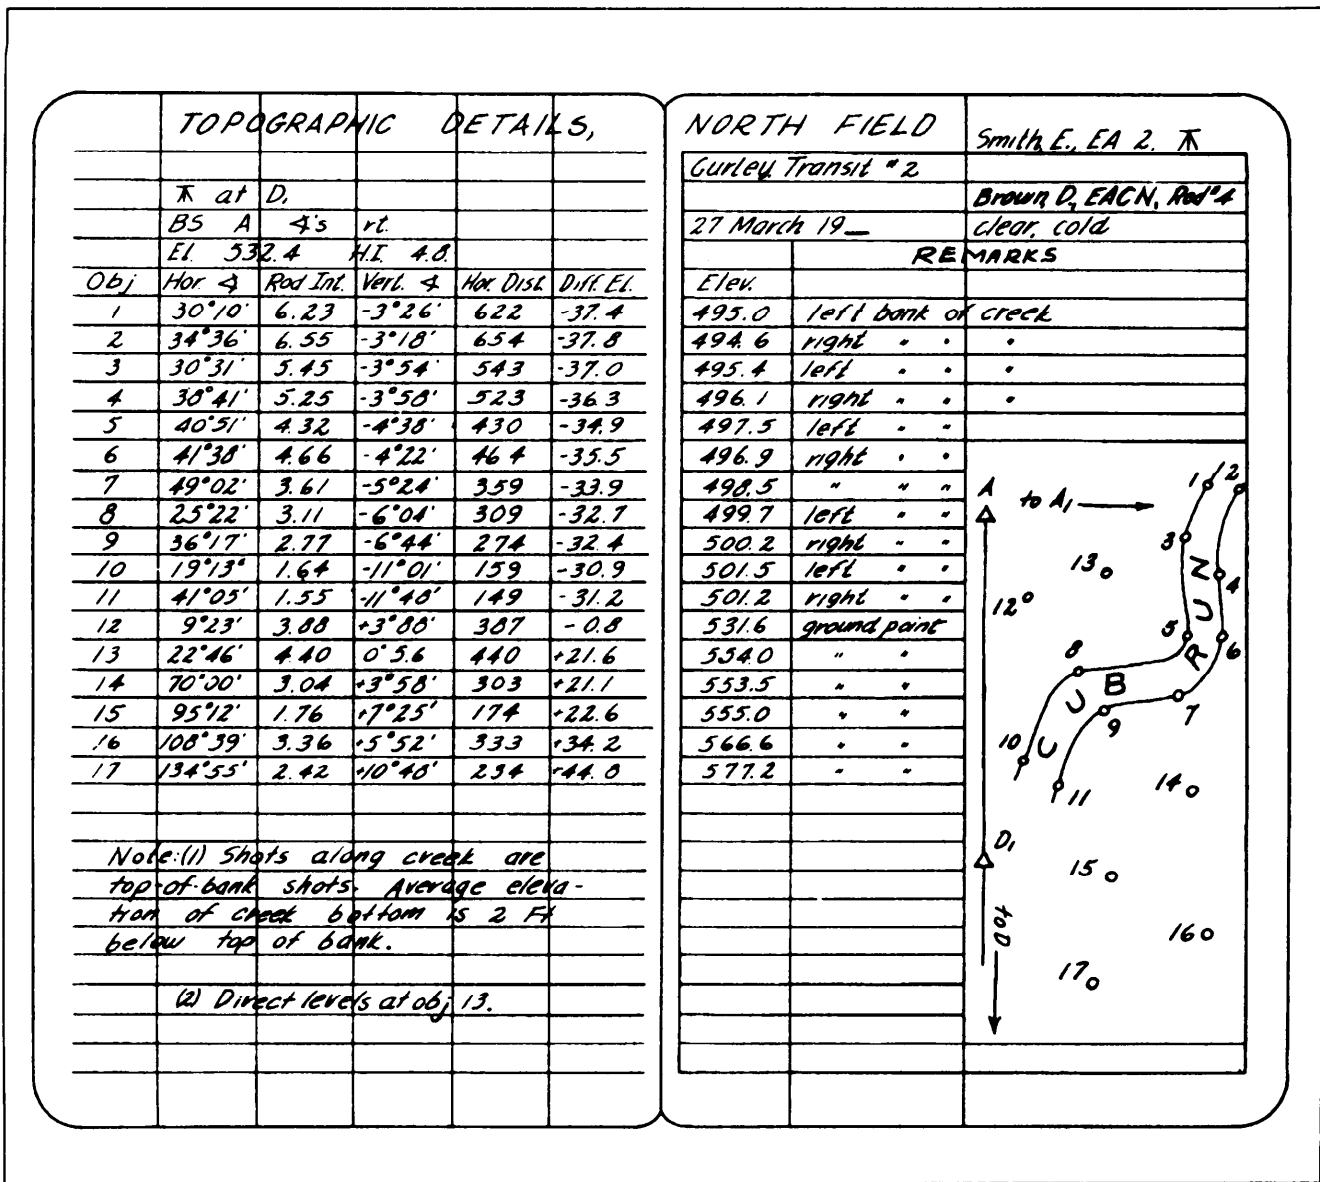 TOPOGRAPHIC DETAILS,
⊼ at D₁
BS A ∡'s rt.
El. 532.4 H.I. 4.8
Obj Hor. ∡ Rod Int. Vert. ∡ Hor. Dist. Diff. El.
1 30°10' 6.23 -3°26' 622 -37.4
2 34°36' 6.55 -3°18' 654 -37.8
3 30°31' 5.45 -3°54' 543 -37.0
4 38°41' 5.25 -3°58' 523 -36.3
5 40°51' 4.32 -4°38' 430 -34.9
6 41°38' 4.66 -4°22' 464 -35.5
7 49°02' 3.61 -5°24' 359 -33.9
8 25°22' 3.11 -6°04' 309 -32.7
9 36°17' 2.77 -6°44' 274 -32.4
10 19°13' 1.64 -11°01' 159 -30.9
11 41°05' 1.55 -11°48' 149 -31.2
12 9°23' 3.88 +3°88' 387 -0.8
13 22°46' 4.40 0°5.6 440 +21.6
14 70°00' 3.04 +3°58' 303 +21.1
15 95°12' 1.76 +7°25' 174 +22.6
16 108°39' 3.36 +5°52' 333 +34.2
17 134°55' 2.42 +10°48' 234 +44.8
Note:(1) Shots along creek are
top-of-bank shots. Average eleva-
tion of creek bottom is 2 Ft
below top of bank.
(2) Direct levels at obj 13.
NORTH FIELD
Smith, E., EA 2. ⊼
Gurley Transit #2
Brown D, EACN, Rod #4
27 March 19__ clear, cold
REMARKS
Elev.
495.0 left bank of creek
494.6 right " " "
495.4 left " " "
496.1 right " " "
497.5 left " "
496.9 right " "
498.5 " " "
499.7 left " "
500.2 right " "
501.5 left " "
501.2 right " "
531.6 ground point
554.0 " "
553.5 " "
555.0 " "
566.6 " "
577.2 " "
1 2
A to A₁
3
13
4
12
5 6
8
7
9
10
11
CUB RUN
14
D₁
15
to D
16
17